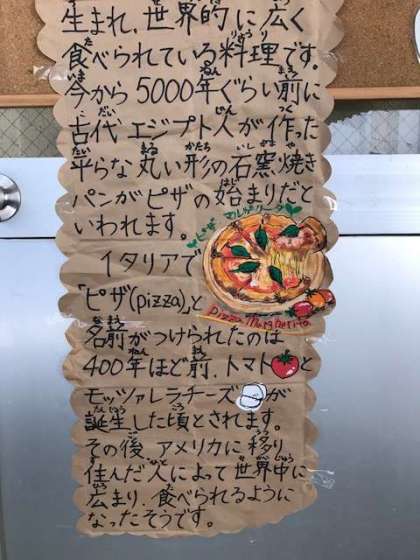 生まれ、世界的に広く
食べられている料理です。
今から5000年ぐらい前に
古代エジプト人が作った
平らな丸い形の石窯焼き
パンがピザの始まりだと
いわれます。
ピザ マルゲリータ
イタリアで
「ピザ(pizza)」と
Pizza Margherita
名前がつけられたのは
400年ほど前、トマトと
モッツァレラチーズが
誕生した頃とされます。
その後アメリカに移り
住んだ人によって世界中に
広まり、食べられるように
なったそうです。